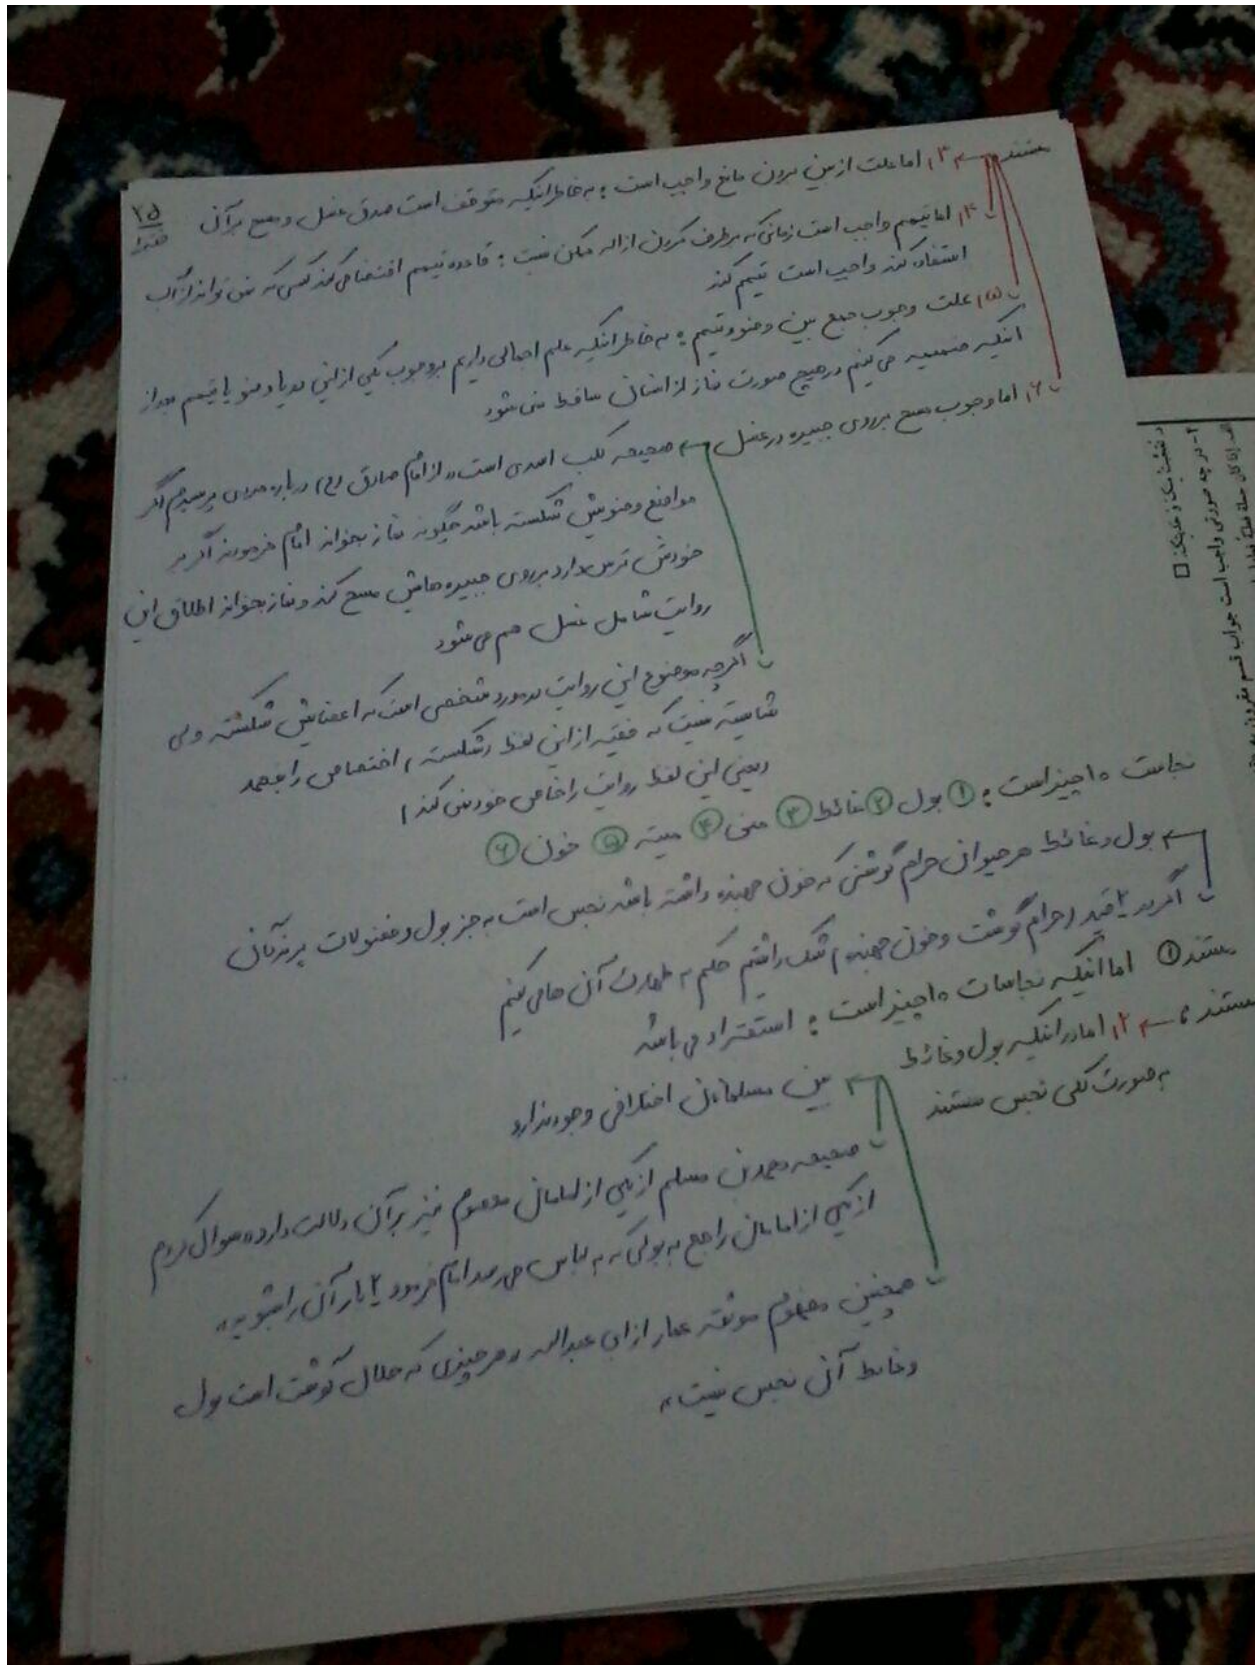 ۲۵
فقه۱
مستند ← ۳) اما علت از بین بردن مانع واجب است : به خاطر اینکه متوقف است صدق غسل و مسح بر آن
۴) اما تیمم واجب است زمانی که برطرف کردن از اله ممکن نیست : قاعده تیمم اقتضا می کند کسی که نمی تواند از آب
استفاده کند واجب است تیمم کند
۵) علت وجوب جمع بین وضو و تیمم : به خاطر اینکه علم اجمالی داریم بر وجوب یکی از این دو یا وضو یا تیمم بعد از
اینکه ضمیمه می کنیم در هیچ صورت نماز از انسان ساقط نمی شود
۶) اما وجوب مسح بر روی جبیره در غسل ← صحیحه کلیب اسدی است « از امام صادق (ع) درباره مردی پرسیدم اگر
مواضع وضویش شکسته باشد چگونه نماز بخواند امام فرمودند اگر بر
خودش ترس دارد بر روی جبیره هایش مسح کند و نماز بخواند اطلاق این
روایت شامل غسل هم می شود
اگرچه موضوع این روایت در مورد شخصی است که اعضایش شکسته ولی
شایسته نیست که فقیه از این لفظ (شکسته) اختصاص را بفهمد
(یعنی این لفظ روایت را خاص خود نمی کند)
نجاست ۱۰ چیز است : ① بول ② غائط ③ منی ④ میته ⑤ خون ⑥
← بول و غائط هر حیوان حرام گوشتی که خون جهنده داشته باشد نجس است به جز بول و فضولات پرندگان
اگر در ۲ قید (حرام گوشت و خون جهنده) شک داشتیم حکم به طهارت آن ها می کنیم
مستند ① اما اینکه نجاسات ۱۰ چیز است : استقراء می باشد
مستند : ← ۲) اما در اینکه بول و غائط
به صورت کلی نجس هستند
← بین مسلمانان اختلافی وجود ندارد
صحیحه محمد بن مسلم از یکی از امامان معصوم نیز بر آن دلالت دارد « سوال کردم
از یکی از امامان راجع به بولی که به لباس می رسد امام فرمود ۲ بار آن را بشوید »
همچنین مفهوم موثقه عمار از ابی عبدالله « هر چیزی که حلال گوشت است بول
و غائط آن نجس نیست »
۲- در چه صورتی واجب است جواب قسم مقرون به